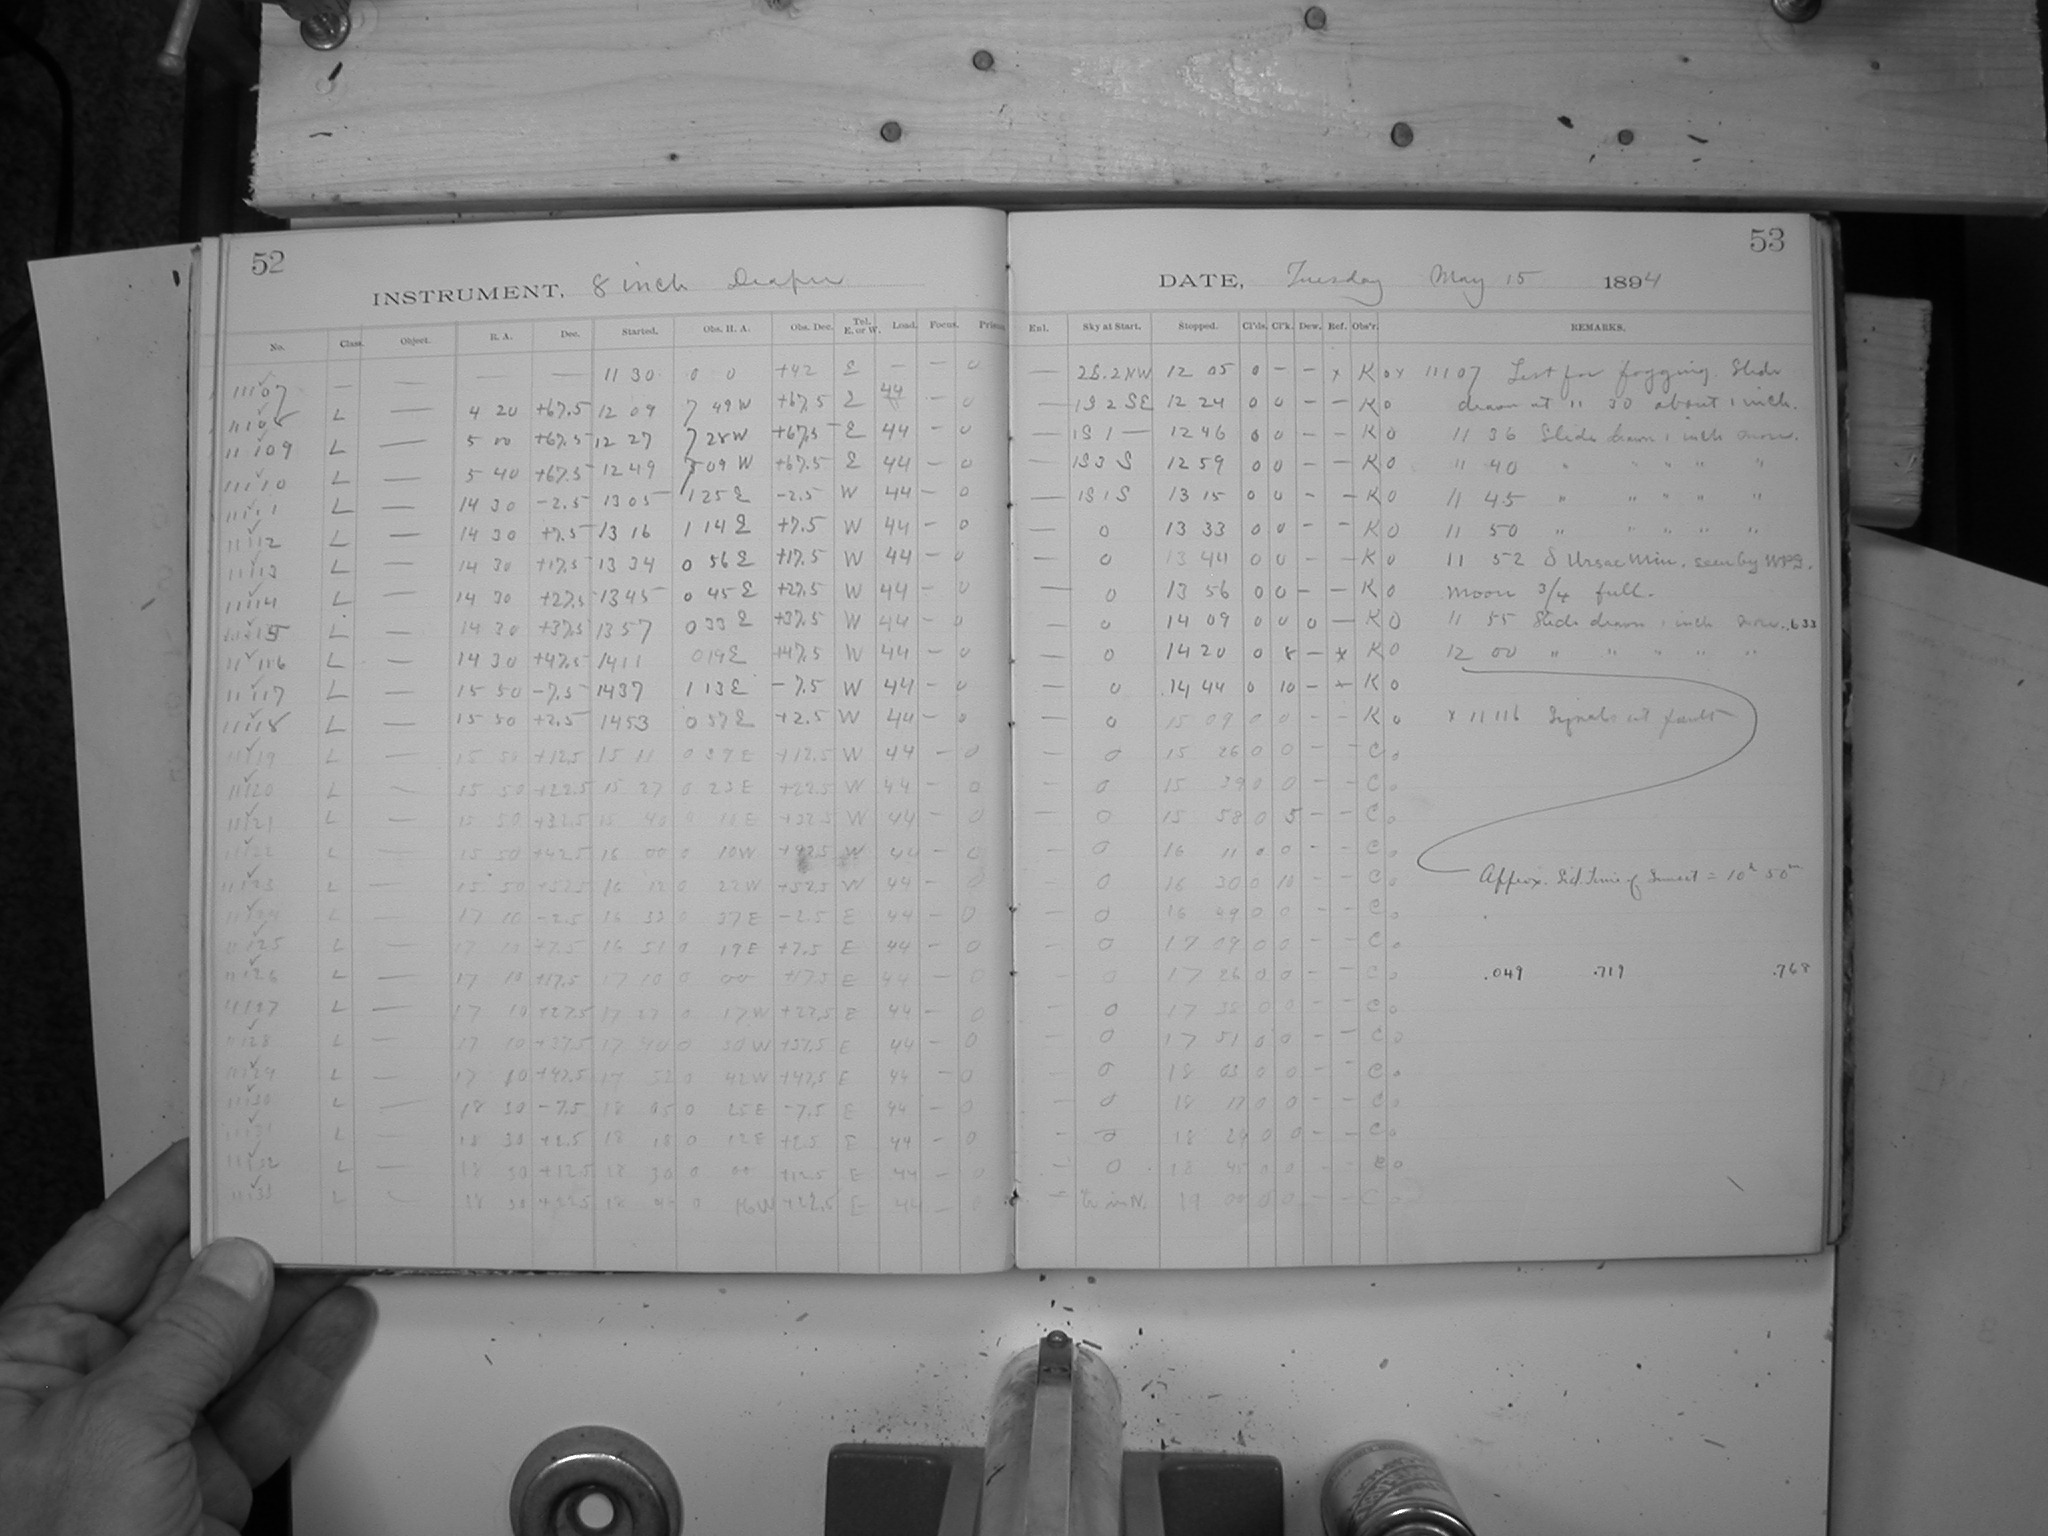 52
INSTRUMENT, 8 inch Draper
No. Class. Object. R. A. Dec. Started. Obs. H. A. Obs. Dec. Tel. E. or W. Load. Focus.
11107 — — — — 11 30 0 0 +42 E — — 0
11108 L — 4 20 +67.5 12 09 7 49 W +67.5 E 44 — 0
11109 L — 5 00 +67.5 12 27 7 28 W +67.5 E 44 — 0
11110 L — 5 40 +67.5 12 49 7 09 W +67.5 E 44 — 0
11111 L — 14 30 -2.5 13 05 1 25 E -2.5 W 44 — 0
11112 L — 14 30 +7.5 13 16 1 14 E +7.5 W 44 — 0
11113 L — 14 30 +17.5 13 34 0 56 E +17.5 W 44 — 0
11114 L — 14 30 +27.5 13 45 0 45 E +27.5 W 44 — 0
11115 L — 14 30 +37.5 13 57 0 33 E +37.5 W 44 — 0
11116 L — 14 30 +47.5 14 11 0 19 E +47.5 W 44 — 0
11117 L — 15 50 -7.5 14 37 1 13 E -7.5 W 44 — 0
11118 L — 15 50 +2.5 14 53 0 57 E +2.5 W 44 — 0
11119 L — 15 50 +12.5 15 11 0 39 E +12.5 W 44 — 0
11120 L — 15 50 +22.5 15 27 0 23 E +22.5 W 44 — 0
11121 L — 15 50 +32.5 15 40 0 10 E +32.5 W 44 — 0
11122 L — 15 50 +42.5 16 00 0 10 W +42.5 W 44 — 0
11123 L — 15 50 +52.5 16 12 0 22 W +52.5 W 44 — 0
11124 L — 17 10 -2.5 16 33 0 37 E -2.5 E 44 — 0
11125 L — 17 10 +7.5 16 51 0 19 E +7.5 E 44 — 0
11126 L — 17 10 +17.5 17 10 0 00 +17.5 E 44 — 0
11127 L — 17 10 +27.5 17 27 0 17 W +27.5 E 44 — 0
11128 L — 17 10 +37.5 17 40 0 30 W +37.5 E 44 — 0
11129 L — 17 10 +47.5 17 52 0 42 W +47.5 E 44 — 0
11130 L — 18 30 -7.5 18 05 0 25 E -7.5 E 44 — 0
11131 L — 18 30 +2.5 18 18 0 12 E +2.5 E 44 — 0
11132 L — 18 30 +12.5 18 30 0 00 +12.5 E 44 — 0
11133 L — 18 30 +22.5 18 0 16 W +22.5 E 44 — 0
53
DATE, Tuesday May 15 1894
Enl. Sky at Start. Stopped. Cl'ds. Cl'k. Dew. Ref. Obs'r. REMARKS.
— 2S.2NW 12 05 0 — — x K 0 x 11107 Test for fogging. Slide
— 1S 2 SE 12 24 0 0 — — K 0 drawn at 11 30 about 1 inch.
— 1S 1 — 12 46 0 0 — — K 0 11 36 Slide drawn 1 inch more.
— 1S 3 S 12 59 0 0 — — K 0 " 40 " " " " "
— 1S 1 S 13 15 0 0 — — K 0 11 45 " " " " "
— 0 13 33 0 0 — — K 0 11 50 " " " " "
— 0 13 44 0 0 — — K 0 11 52 δ Ursae Min. seen by WPG.
— 0 13 56 0 0 — — K 0 Moon 3/4 full.
— 0 14 09 0 0 0 — K 0 11 55 Slide drawn 1 inch more. .633
— 0 14 20 0 8 — x K 0 12 00 " " " " "
— 0 14 44 0 10 — x K 0
— 0 15 09 0 0 — — K 0 x 11116 Signals at fault
— 0 15 26 0 0 — — C 0
— 0 15 39 0 0 — — C 0
— 0 15 58 0 5 — — C 0
— 0 16 11 0 0 — — C 0
— 0 16 30 0 10 — — C 0 Approx. Sid. Time of Sunset = 10h 50m
— 0 16 49 0 0 — — C 0
— 0 17 09 0 0 — — C 0
— 0 17 26 0 0 — — C 0 .049 .719 .768
— 0 17 38 0 0 — — C 0
— 0 17 51 0 0 — — C 0
— 0 18 03 0 0 — — C 0
— 0 18 17 0 0 — — C 0
— 0 18 29 0 0 — — C 0
— 0 18 45 0 0 — — C 0
— in N. 19 00 0 0 — — C 0